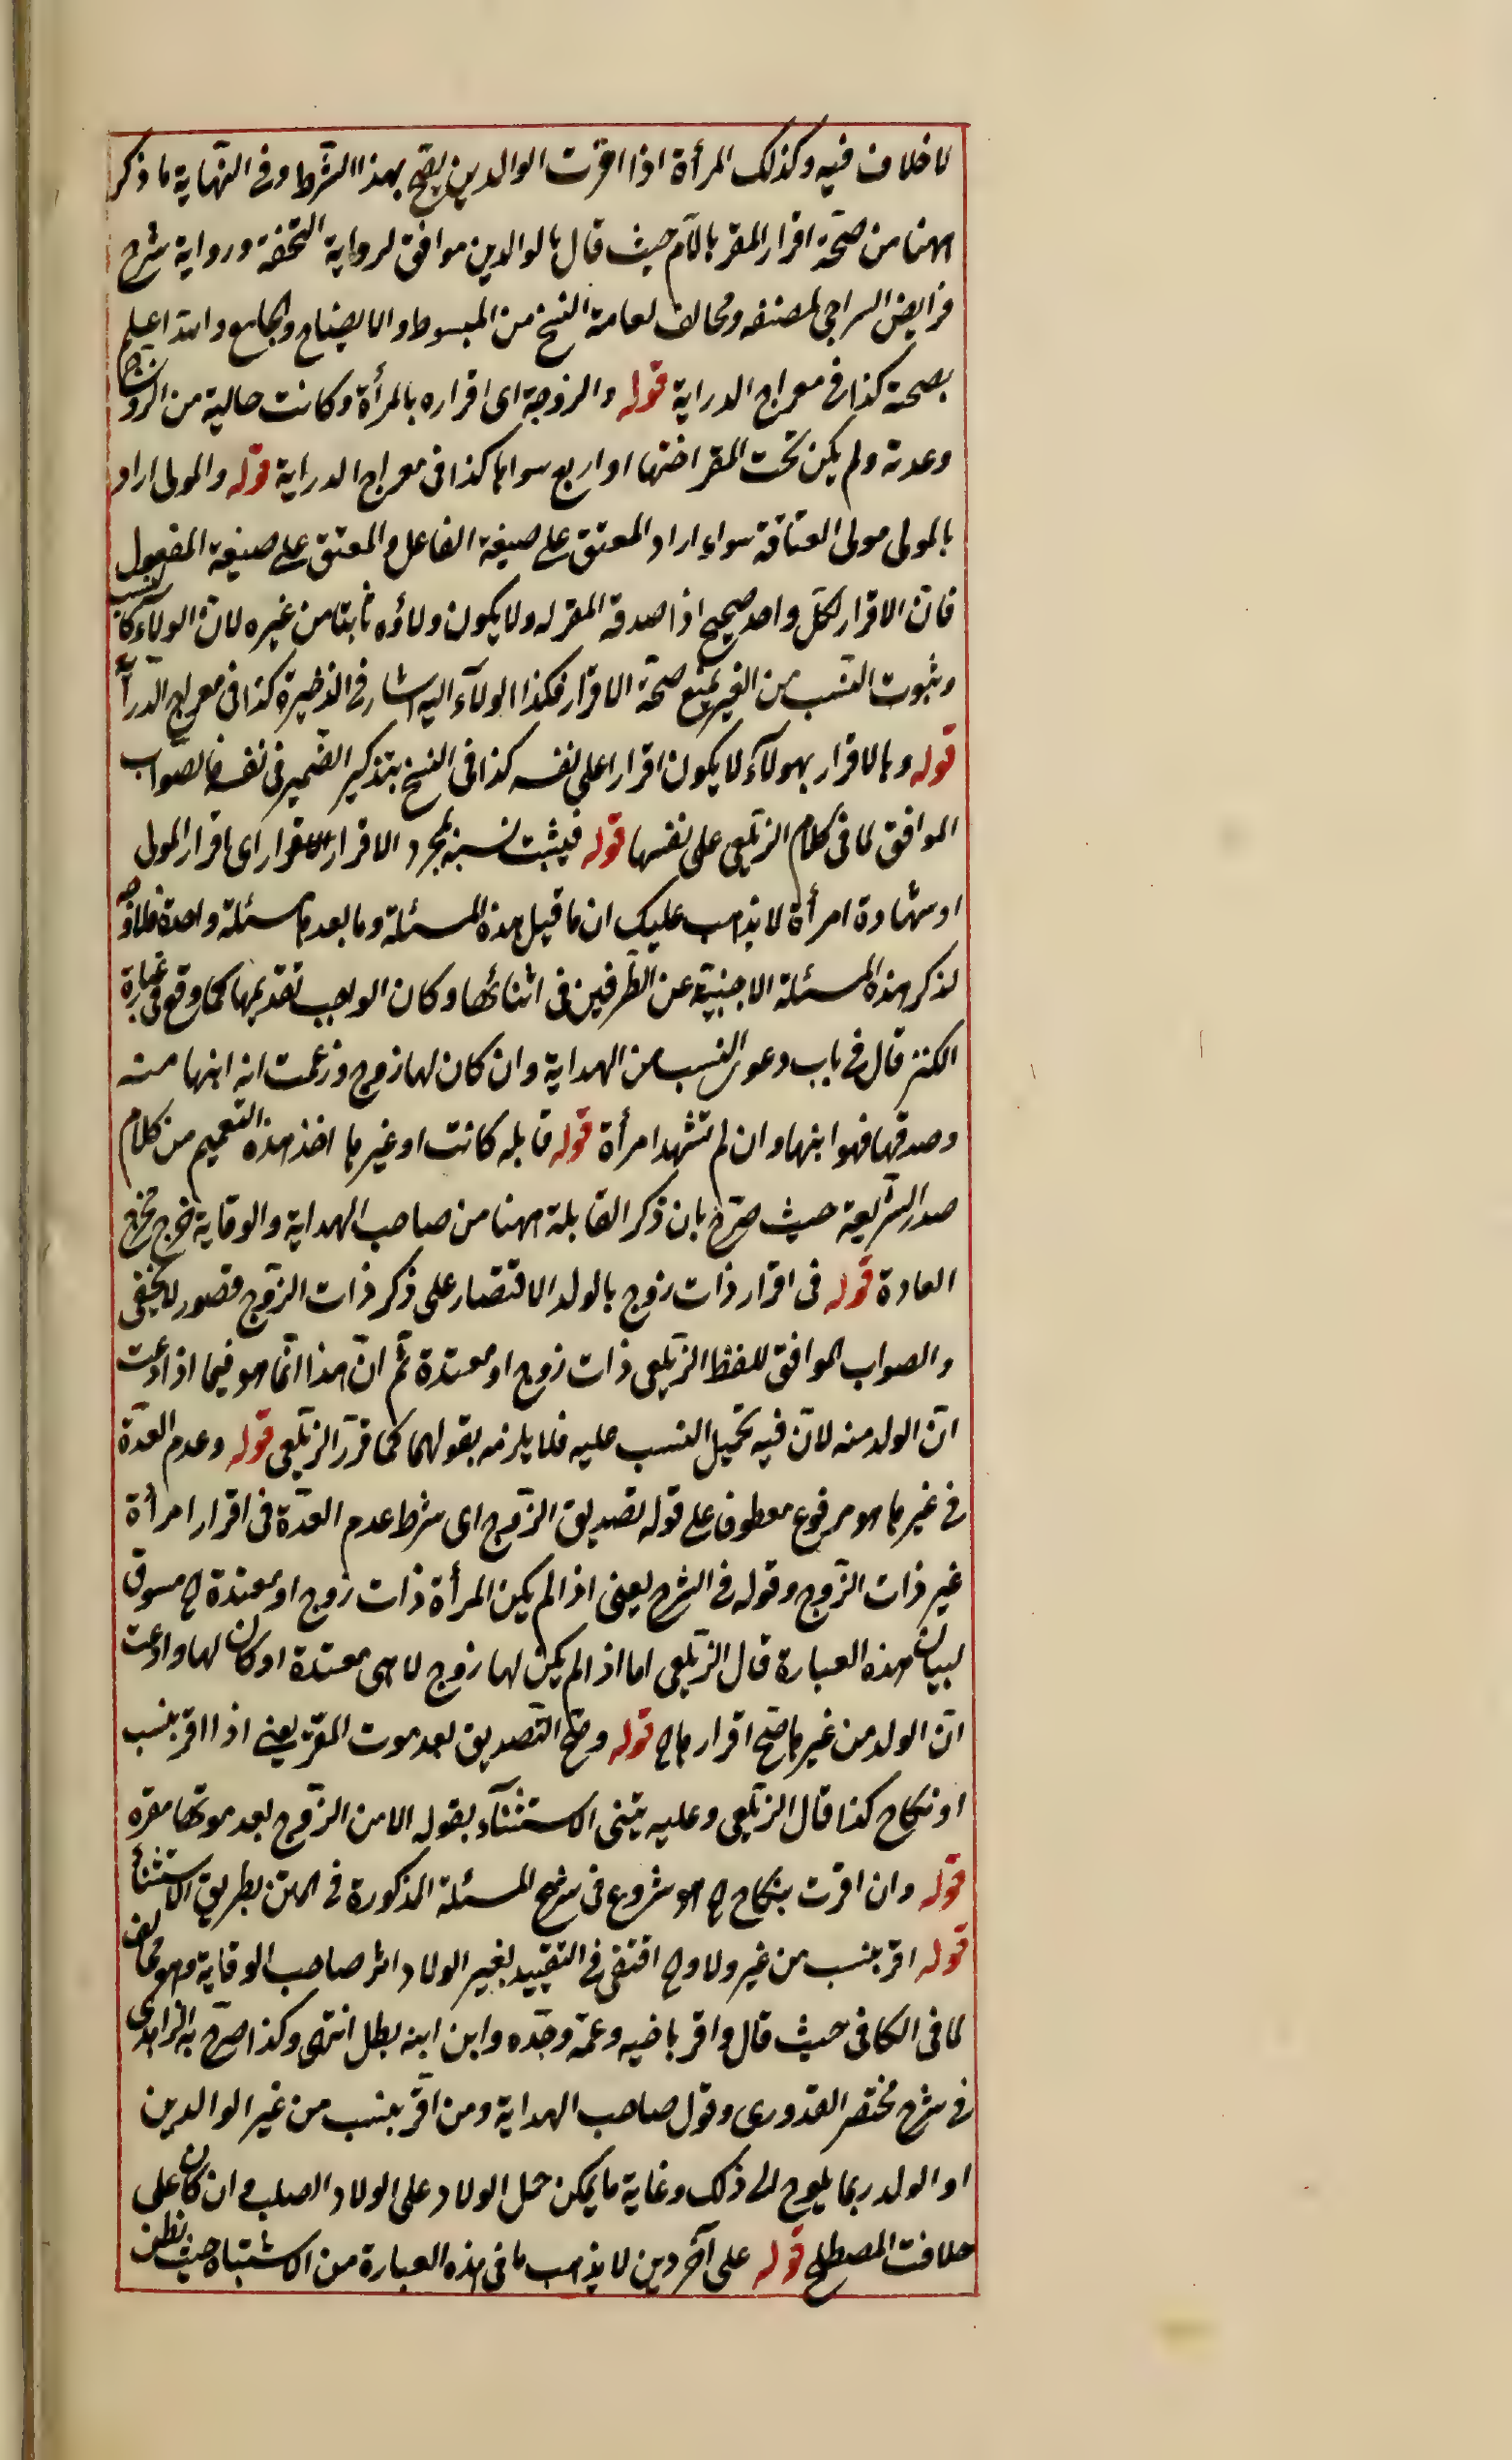 لا خلاف فيه وكذلك المرأة اذا اقرت الوالدين يصح بهذا الشرط وفى النهاية ما ذكر
ههنا من صحة اقرار المقر بالام حيث قال بالوالدين موافق لرواية التحفة ورواية شرح
فرايض السراجى لمصنفه ومخالف لعامة النسخ من المبسوط والايضاح والجامع والله اعلم
بصحته كذا فى معراج الدراية قوله والزوجة اى اقراره بالمرأة وكانت خالية من الزوج
وعدته ولم يكن تحت المقر اختها او اربع سواها كذا فى معراج الدراية قوله والمولى اراد
بالمولى مولى العتاقة سواء اراد المعتق على صيغة الفاعل والمعتق على صيغة المفعول
فان الاقرار لكل واحد صحيح اذا صدقه المقر له ولا يكون ولاؤه ثابتا من غيره لان الولاء كالنسب
وثبوت النسب من الغير يمنع صحة الاقرار فكذا الولاء اليه اشار فى الذخيرة كذا فى معراج الدراية
قوله وبالاقرار بهؤلاء لا يكون اقرارا على نفسه كذا فى النسخ بتذكير الضمير فى نفسه فالصواب
الموافق لما فى كلام الزيلعى على نفسها قوله فيثبت نسبه بمجرد الاقرار اى باقرار المولى
او شهادة امرأة لا يذهب عليك ان ما قبل هذه المسئلة وما بعدها مسئلة واحدة فلا وجه
لذكر هذه المسئلة الاجنبية عن الطرفين فى اثنائها وكان الواجب تقديمها كما وقع فى عبارة
الكنز قال فى باب دعوى النسب من الهداية وان كان لها زوج وزعمت انه ابنها منه
وصدقها فهو ابنها وان لم تشهد امرأة قوله قابلة كانت او غيرها اخذ هذه التعميم من كلام
صدر الشريعة حيث صرح بان ذكر القابلة ههنا من صاحب الهداية والوقاية خرج مخرج
العادة قوله فى اقرار ذات زوج بالولد الاقتصار على ذكر ذات الزوج قصور لا يخفى
والصواب الموافق للفظ الزيلعى ذات زوج او معتدة ثم ان هذا انما هو فيما اذا ادعت
ان الولد منه لان فيه تحميل النسب عليه فلا يلزمه بقولهما كما قرر الزيلعى قوله وعدم العدة
فى غيرها هو مرفوع معطوف على قوله تصديق الزوج اى شرط عدم العدة فى اقرار امرأة
غير ذات الزوج وقوله فى الشرح يعنى اذا لم يكن المرأة ذات زوج او معتدة الخ مسوق
لبيان هذه العبارة قال الزيلعى اما اذا لم يكن لها زوج لا هى معتدة او كان لها وادعت
ان الولد من غيرها صح اقرارها الخ قوله وصح التصديق بعد موت المقر يعنى اذا اقر بنسب
او نكاح كذا قال الزيلعى وعليه يبتنى الاستثناء بقوله الا من الزوج بعد موتها مقرة
قوله وان اقرت بنكاح الخ هو شروع فى شرح المسئلة المذكورة فى المتن بطريق الاستثناء
قوله اقر بنسب من غير ولاد الخ اقتفى فى التقييد بغير الولاد اثر صاحب الوقاية وهو مخالف
لما فى الكافى حيث قال واقر باخيه وعمه وجده وابن ابنه بطل انتهى وكذا صرح به الزاهدى
فى شرح مختصر القدورى وقول صاحب الهداية ومن اقر بنسب من غير الوالدين
او الولد ربما يلوح الى ذلك وغاية ما يمكن حمل الولاد على الولاد الصلب وان كان على
خلاف المصطلح قوله على آخر دين لا يذهب ما فى هذه العبارة من الاشتباه حيث يظن